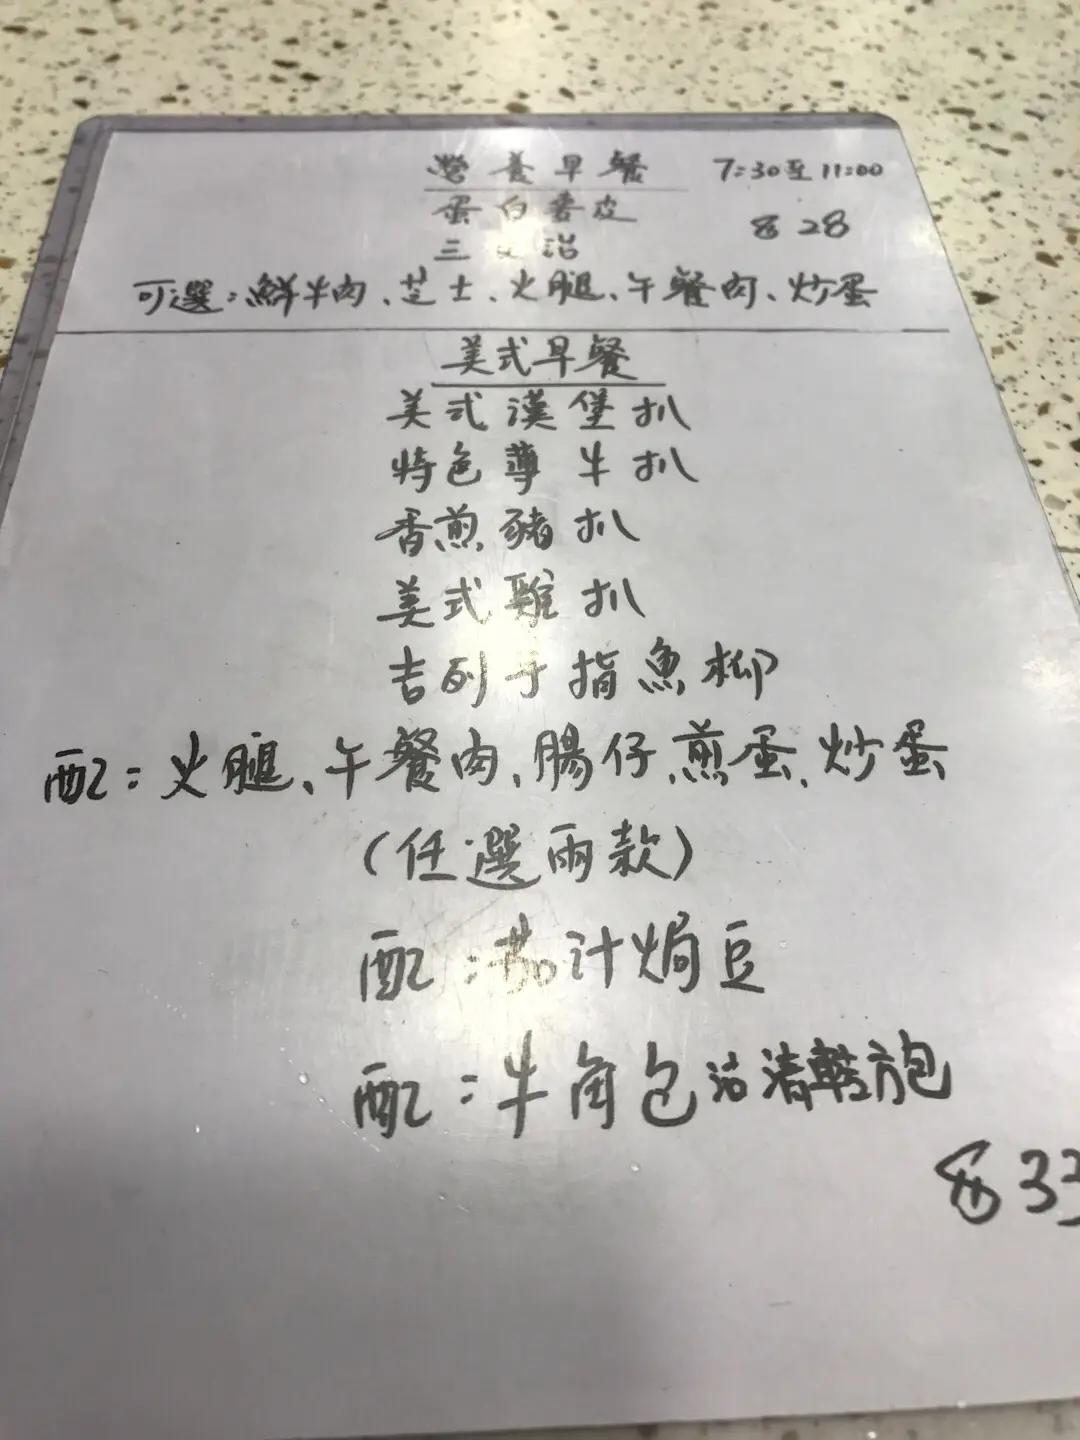 營養早餐 7:30至11:00
蛋白薯皮 $28
三文治
可選:鮮牛肉、芝士、火腿、午餐肉、炒蛋
美式早餐
美式漢堡扒
特色薄牛扒
香煎豬扒
美式雞扒
吉列手指魚柳
配:火腿、午餐肉、腸仔、煎蛋、炒蛋
(任選兩款)
配:茄汁焗豆
配:牛角包 方包
$33